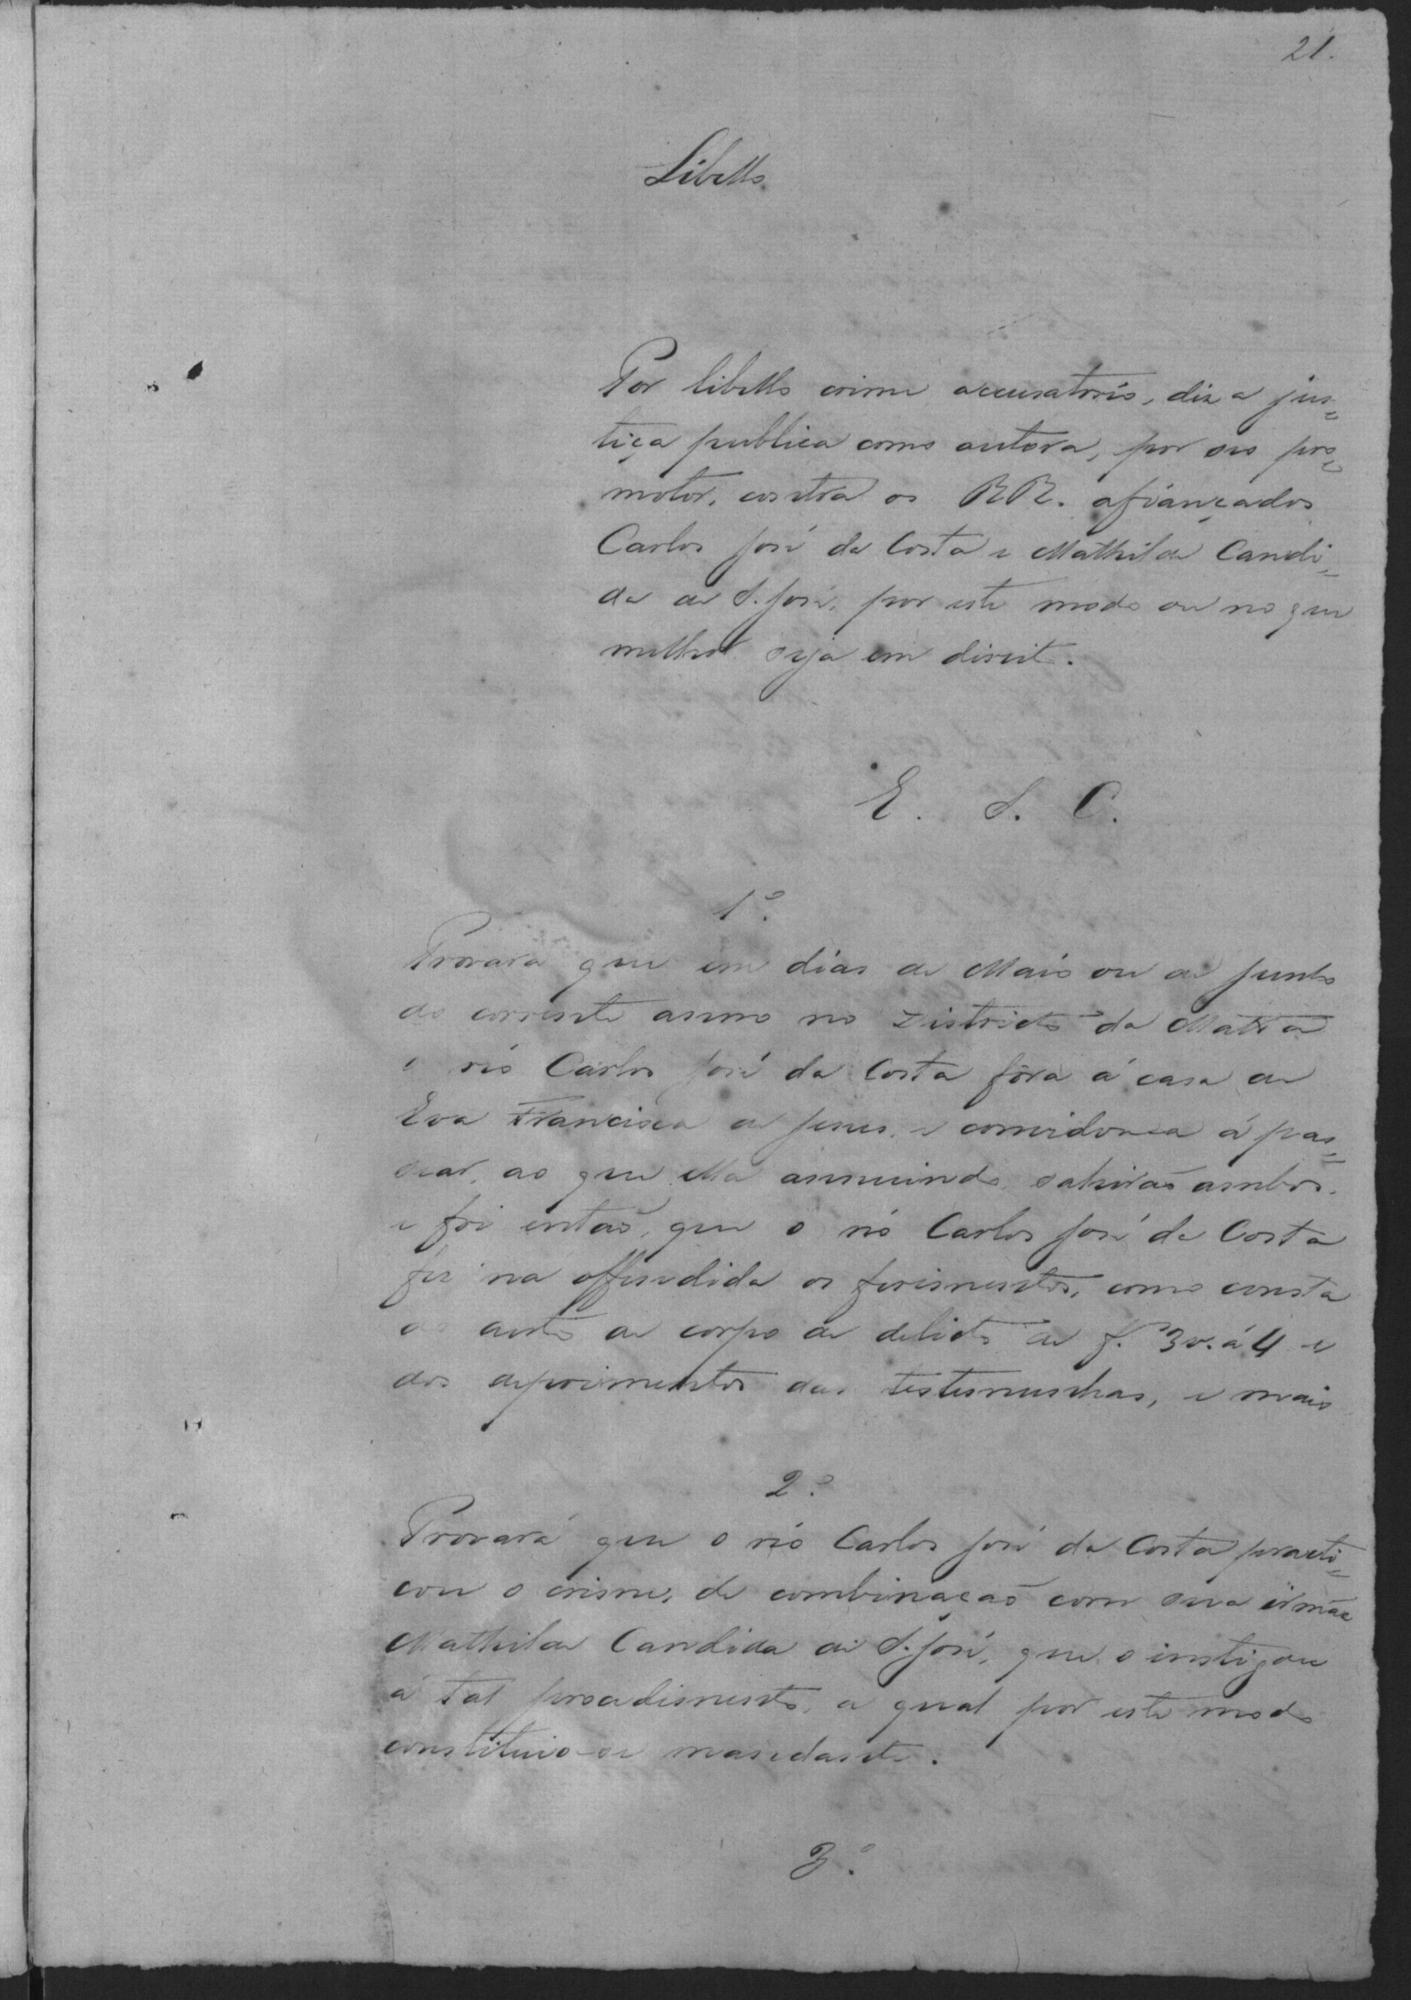 21.
Libello
Por libello crime accusatorio, diz a jus=
tiça publica como autora, por seu pro=
motor, contra os RR. afiançados
Carlos José da Costa e Mathilde Candi=
da de S. José, por este modo ou no que
melhor seja em direito.
E. S. C.
1º.
Provará que em dias de Maio ou de Junho
do corrente anno no Districto da Matta
o réo Carlos José da Costa fôra á casa de
Eva Francisca de Jesus, e convidou-a á pas=
sear, ao que ella annuindo, sahirão ambos.
e foi então, que o réo Carlos José da Costa
fez na offendida os ferimentos, como consta
do auto de corpo de delicto de f. 3v. á 4 e
dos depoimentos das testemunhas, e mais
2º.
Provará que o réo Carlos José da Costa practi=
cou o crime, de combinação com sua irmãe
Mathilde Candida de S. José, que o instigou
á tal procedimento, a qual por este modo
constituio-se mandante.
3º.